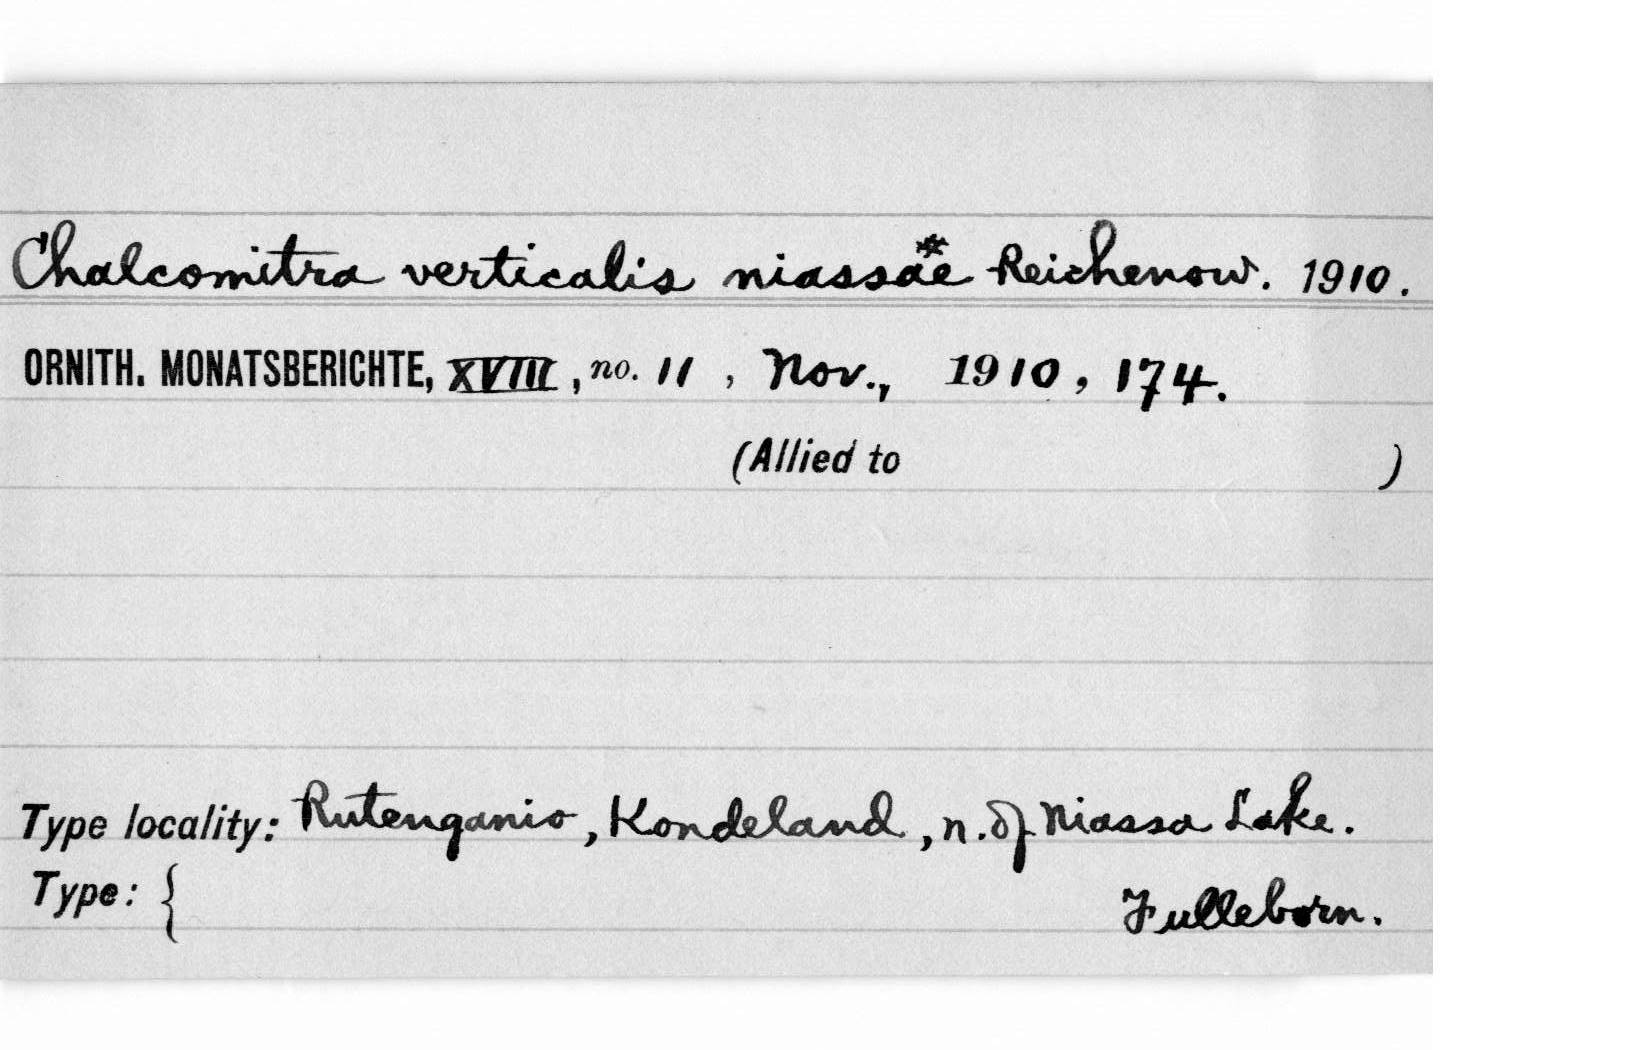 Chalcomitra verticalis niassae* Reichenow. 1910.
ORNITH. MONATSBERICHTE, XVIII, no. 11, Nov., 1910, 174.
(Allied to )
Type locality: Rutenganio, Kondeland, n. of Niassa Lake.
Type: { Fulleborn.